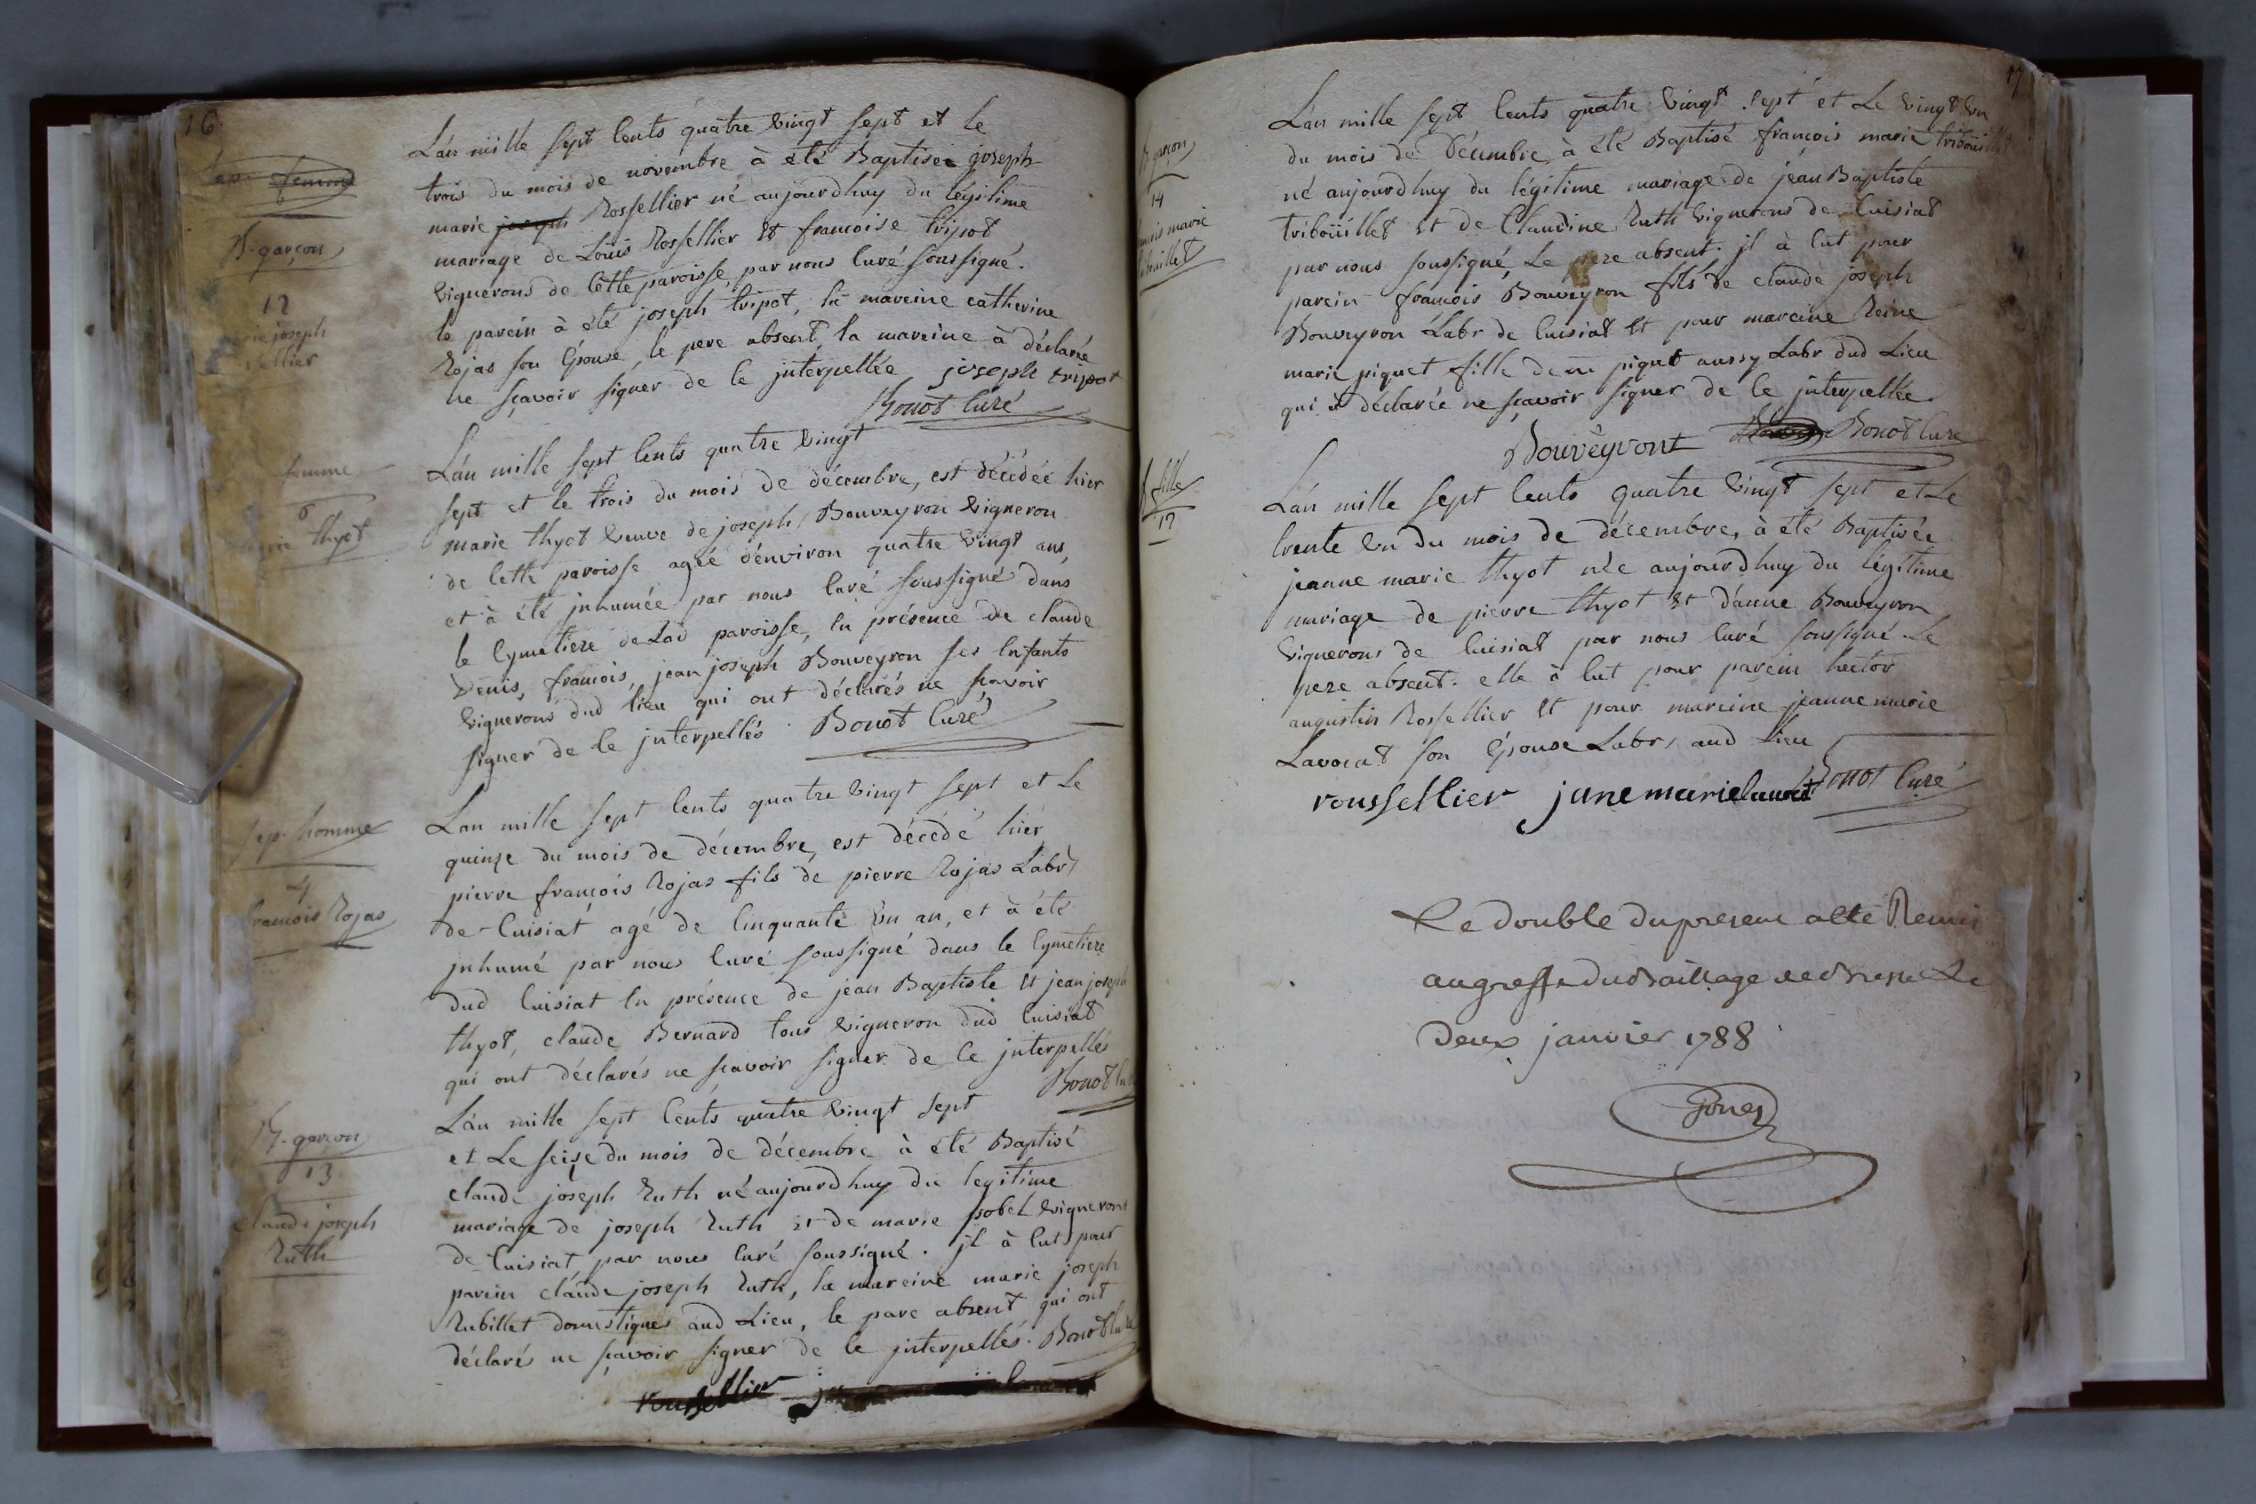 16
L'an mille sept Cents quatre vingt sept et le
trois du mois de novembre à été Baptisée joseph
marie joseph Rossellier né aujourdhuy du légitime
mariage de Louis Rossellier et francoise tripot
vignerons de Cette paroisse, par nous Curé soussigné.
le parein à été joseph tripot, la mareine catherine
Rojas son Épouse, le pere absent, la mareine à déclarée
ne sçavoir signer de ce jnterpellée joseph tripot
Bonot Curé
B. garçon
12
joseph
femme
6
thyot
L'an mille sept Cents quatre vingt
sept et le trois du mois de décembre, est décédée hier
marie thyot veuve de joseph Bouveyron vigneron
de Cette paroisse agée d'environ quatre vingt ans,
et à été jnhumée par nous Curé soussigné dans
le Cymetiere de Lad paroisse, En présence de claude
Denis, francois, jean joseph Bouveyron ses Enfants
vignerons dud lieu qui ont déclarés ne sçavoir
signer de Ce jnterpellés. Bonot Curé
sep. homme
4
francois Rojas
L'an mille sept Cents quatre vingt sept et Le
quinze du mois de décembre, est décédé hier
pierre françois Rojas fils de pierre Rojas Labr
de Cuisiat agé de Cinquante un an, et à été
jnhumé par nous Curé soussigné dans le Cymetiere
dud Cuisiat En présence de jean Baptiste Et jean joseph
thyot, claude Bernard tous vigneron dud Cuisiat
qui ont déclarés ne sçavoir signer de Ce jnterpellés
Bonot Curé
B. garçon
13
Claude joseph
Ruth
L'an mille sept Cents quatre vingt sept
et Le seize du mois de décembre à été Baptisé
claude joseph Ruth né aujourdhuy du legitime
mariage de joseph Ruth Et de marie jsobel vignerons
de Cuisiat, par nous Curé soussigné. jl à Eut pour
parein claude joseph Ruth, la mareine marie joseph
Rubillet domestiques aud Lieu, le pere absent qui ont
déclarés ne sçavoir signer de Ce jnterpellés. Bonot Curé
roussellier
17
B. garçon
14
marie
L'an mille sept Cents quatre vingt sept et Le vingt un
du mois de Décembre, à été Baptisé françois marie tribouillet
né aujourdhuy du légitime mariage de jean Baptiste
tribouillet Et de Claudine Ruth vignerons de Cuisiat
par nous soussigné, Le pere absent. jl à Eut pour
parein francois Bouveyron fils de claude joseph
Bouveyron Labr de Cuisiat Et pour mareine Reine
marie piquet fille de piquet aussy Labr dud Lieu
qui à déclarée ne sçavoir signer de Ce jnterpellée.
Bouvêyront Bonot Curé
B fille
12
L'an mille sept Cents quatre vingt sept et Le
trente un du mois de décembre, à été Baptisée
jeanne marie thyot née aujourdhuy du légitime
mariage de pierre thyot Et d'anne Bouveyron
vignerons de Cuisiat par nous Curé soussigné. Le
pere absent. elle à Eut pour parein hector
augustin Rossellier Et pour mareine jeanne marie
Lavocat son Épouse Labr aud Lieu
roussellier jane marie lavocat Bonot Curé
Le double du present acte Remis
au greffe du Baillage de Bresse Le
Deux janvier 1788